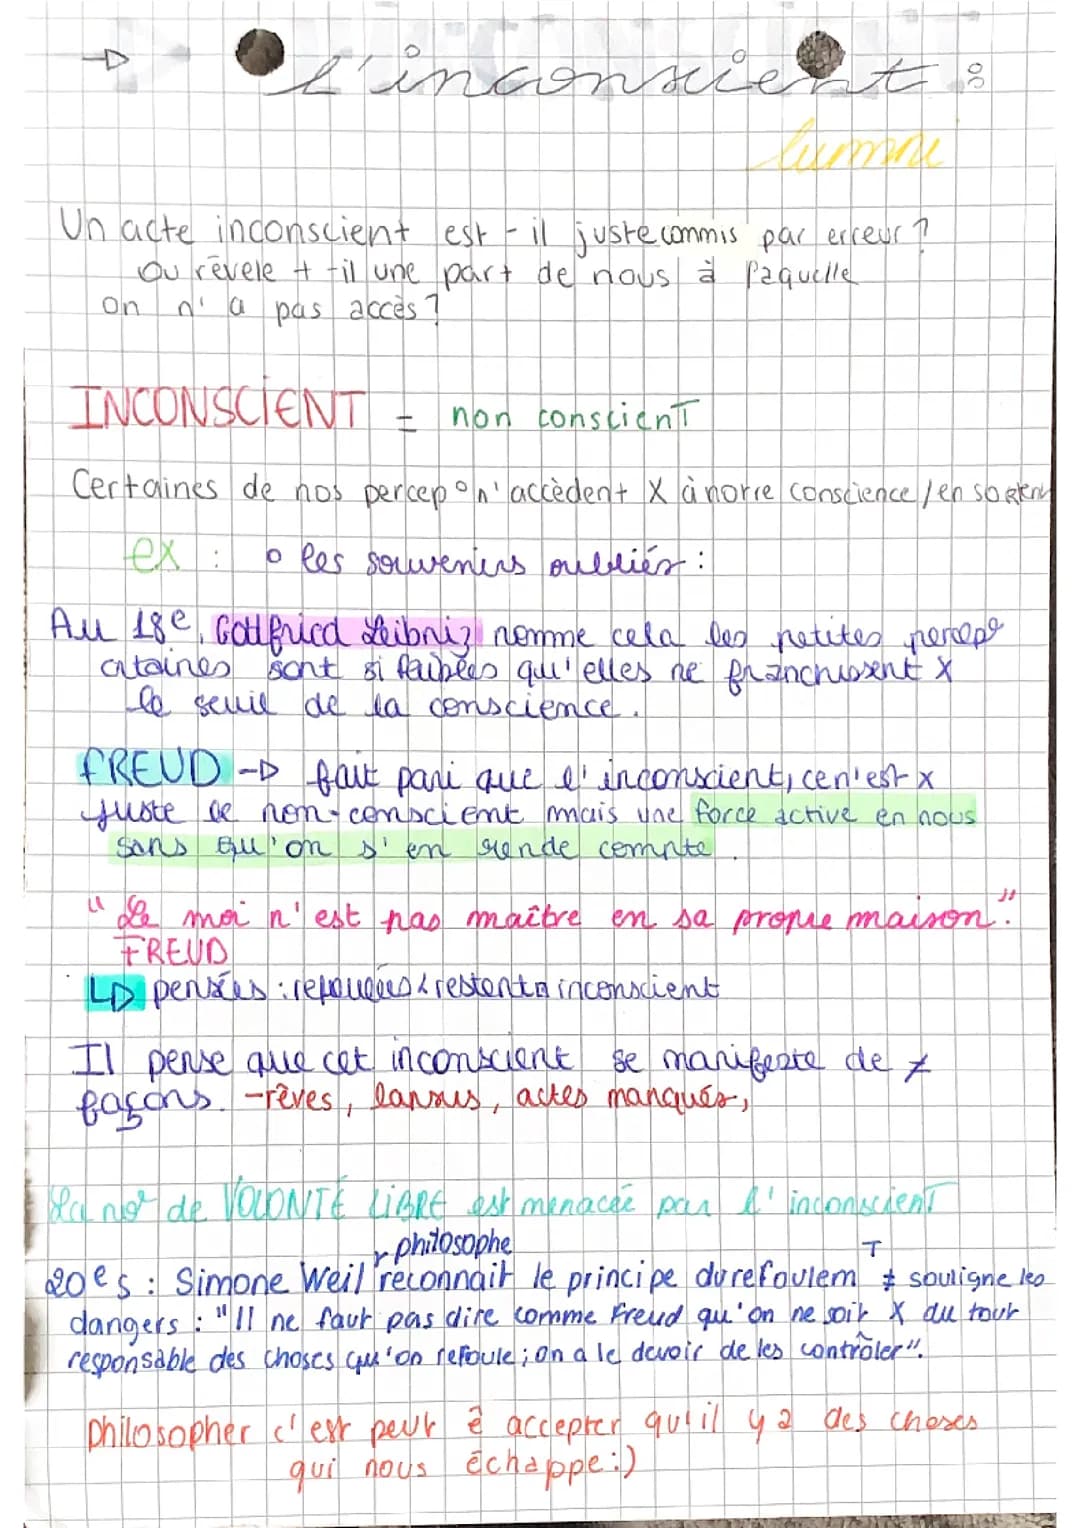 L'inconscient :
lumni
Un acte inconscient est-il juste commis par erreur ?
Ou révele t-il une part de nous à laquelle
on n'a pas accès ?
INCONSCIENT = non conscient
Certaines de nos percep° n'accèdent X à notre conscience / en sortent
ex : o les souvenirs oubliés :
Au 18e, Gottfried Leibniz nomme cela les petites percep°
certaines sont si faibles qu'elles ne franchissent X
le seuil de la conscience.
FREUD -> fait pari que l'inconscient, ce n'est x
juste le non-conscient mais une force active en nous
sans qu'on s'en rende compte.
"Le moi n'est pas maître en sa propre maison".
FREUD
↳ pensées : refoulées & restent inconscient
Il pense que cet inconscient se manifeste de ≠
façons. -rêves, lapsus, actes manqués,
La no° de VOLONTÉ LIBRE est menacée par l'inconscient
philosophe
20e s : Simone Weil reconnait le principe du refoulem T ≠ souligne les
dangers : "Il ne faut pas dire comme Freud qu'on ne soit X du tout
responsable des choses qu'on refoule ; on a le devoir de les contrôler".
Philosopher c'est peut ê accepter qu'il y a des choses
qui nous échappe :)